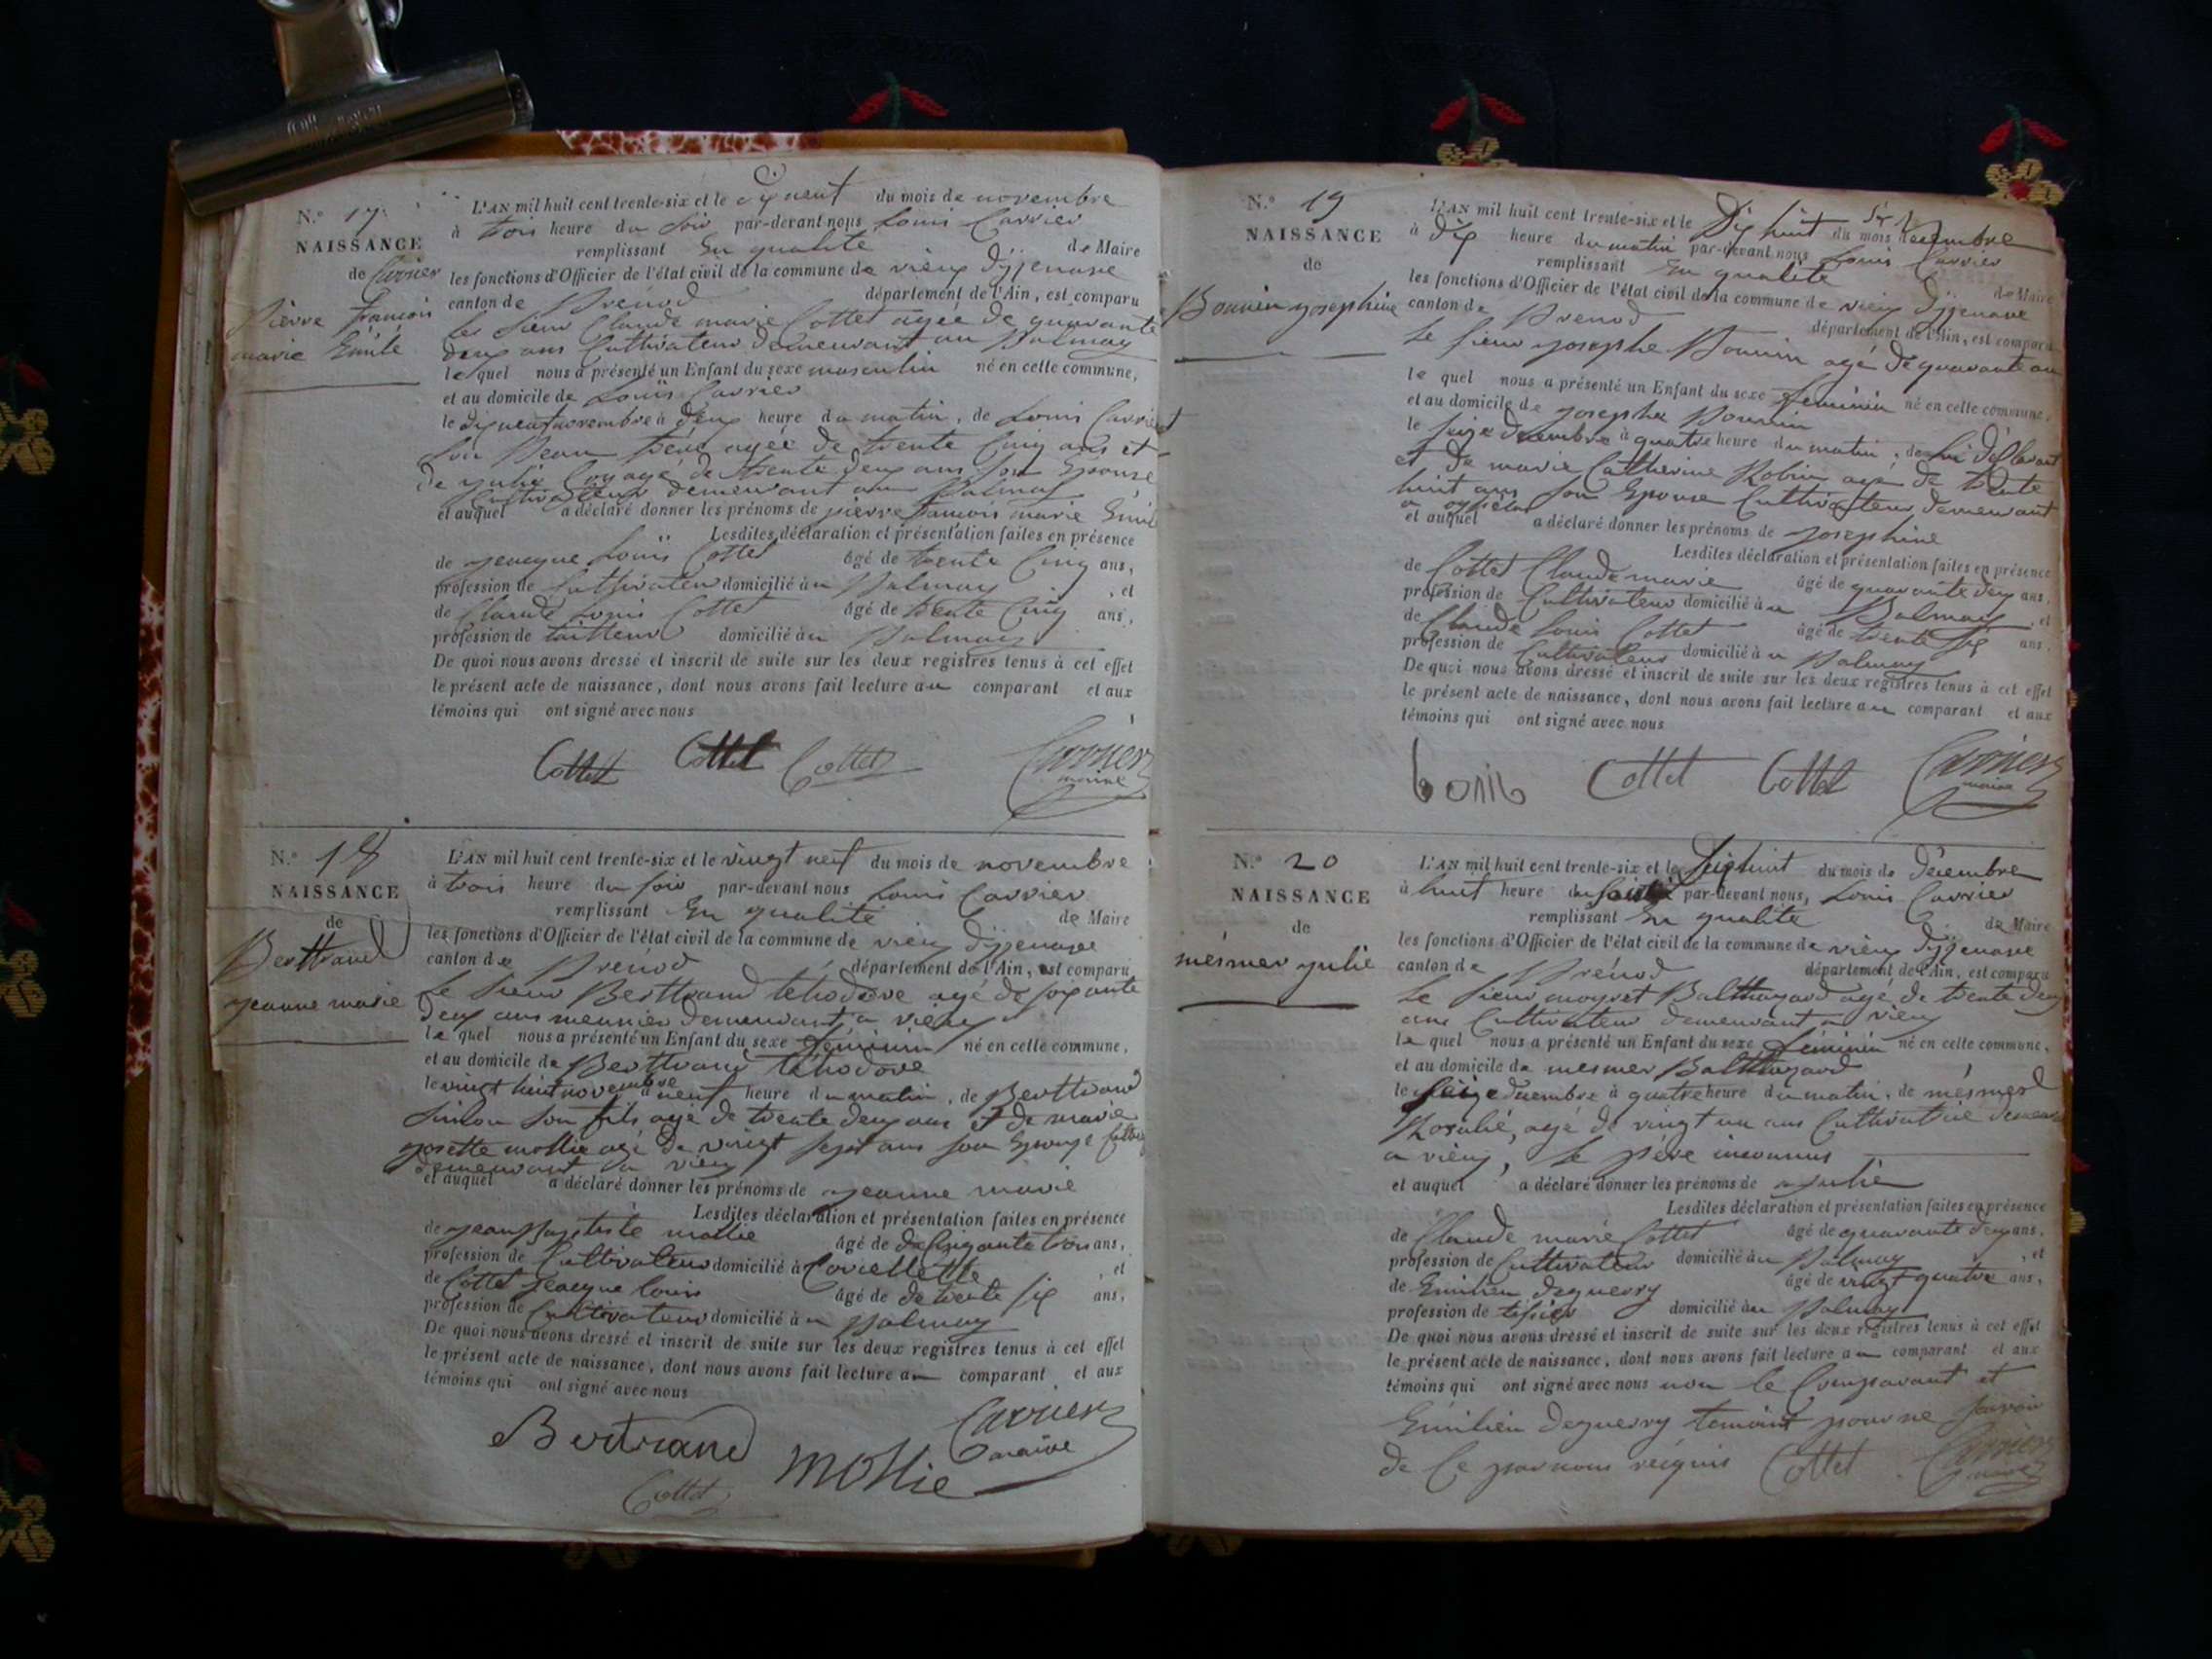 N.° 17
NAISSANCE
de Carrier
Pierre françois
marie Emile
L'AN mil huit cent trente-six et le dixneuf du mois de novembre
à trois heure du soir par-devant nous Louis Carrier
remplissant En qualité de Maire
les fonctions d'Officier de l'état civil de la commune de vieux dizenave
canton de Brénod département de l'Ain, est comparu
le sieur Claude marie Cottet agée de quarante
deux ans Cultivateur demeurant au Balmay
lequel nous a présenté un Enfant du sexe masculin né en cette commune,
et au domicile de Louis Carrier
le dixneuf novembre à deux heure du matin, de Louis Carrier
agée de trente Cinq ans et
de julie agé de trente deux ans son Epouse
Cultivateur demeurant au Balmay
et auquel a déclaré donner les prénoms de pierre francois marie Emile
Lesdites déclaration et présentation faites en présence
de jeacque Louis Cottet âgé de trente Cinq ans,
profession de Cultivateur domicilié au Balmay, et
de Claude Louis Cottet âgé de trente Cinq ans,
profession de tailleur domicilié au Balmay
De quoi nous avons dressé et inscrit de suite sur les deux registres tenus à cet effet
le présent acte de naissance, dont nous avons fait lecture au comparant et aux
témoins qui ont signé avec nous
Cottet Cottet Cottet Carrier
maire
N.° 18
NAISSANCE
de
Berttrand
jeanne marie
L'AN mil huit cent trente-six et le vingt neuf du mois de novembre
à trois heure du soir par-devant nous Louis Carrier
remplissant En qualité de Maire
les fonctions d'Officier de l'état civil de la commune de vieux dizenave
canton de Brénod département de l'Ain, est comparu
le sieur Berttrand téhodore agé de soixante
deux ans meunier demeurant a vieux
lequel nous a présenté un Enfant du sexe feminin né en cette commune,
et au domicile de Berttrand téhodore
le vingt huit novembre à neuf heure du matin, de Berttrand
son fils agé de trente deux ans et de marie
josette mollie agé de vingt sept ans son Epouse
demeurant a vieux
et auquel a déclaré donner les prénoms de jeanne marie
Lesdites déclaration et présentation faites en présence
de jean Baptiste mollie âgé de soixante trois ans,
profession de Cultivateur domicilié à Corcellette, et
de Cottet jeacque louis âgé de de trente six ans,
profession de Cultivateur domicilié au Balmay
De quoi nous avons dressé et inscrit de suite sur les deux registres tenus à cet effet
le présent acte de naissance, dont nous avons fait lecture au comparant et aux
témoins qui ont signé avec nous
Carrier
Bertrand maire
mollie
Cottet
N.° 19
NAISSANCE
de
Bonnin josephine
L'AN mil huit cent trente-six et le Dix huit du mois decembre
à dix heure du matin par-devant nous Louis Carrier
remplissant En qualité de Maire
les fonctions d'Officier de l'état civil de la commune de vieux dizenave
canton de Brenod département de l'Ain, est comparu
le sieur josephe Bonnin agé de quarante ans
lequel nous a présenté un Enfant du sexe feminin né en cette commune,
et au domicile de josephe Bonnin
le seize decembre à quatre heure du matin, de lui déclarant
et de marie Catherine Robin agé de trente
huit ans son Epouse Cultivateur demeurant
et auquel a déclaré donner les prénoms de josephine
Lesdites déclaration et présentation faites en présence
de Cottet Claude marie âgé de quarante deux ans,
profession de Cultivateur domicilié au Balmay, et
de Claude Louis Cottet âgé de trente six ans,
profession de Cultivateur domicilié au Balmay
De quoi nous avons dressé et inscrit de suite sur les deux registres tenus à cet effet
le présent acte de naissance, dont nous avons fait lecture au comparant et aux
témoins qui ont signé avec nous
Cottet Cottet Carrier
maire
N.° 20
NAISSANCE
de
mésmer julie
L'AN mil huit cent trente-six et le Dixhuit du mois de Décembre
à huit heure du par-devant nous, Louis Carrier
remplissant En qualité de Maire
les fonctions d'Officier de l'état civil de la commune de vieux dizenave
canton de Brénod département de l'Ain, est comparu
le sieur moyret Balthazard agé de trente deux
ans Cultivateur demeurant a vieux
lequel nous a présenté un Enfant du sexe feminin né en cette commune,
et au domicile de mesmer Balthazard
le seize decembre à quatre heure du matin, de mésmer
Rosalie, agé de vingt un ans Cultivatrice
a vieux, le père inconnus
et auquel a déclaré donner les prénoms de julie
Lesdites déclaration et présentation faites en présence
de Claude marie Cottet âgé de quarante deux ans,
profession de Cultivateur domicilié au Balmay, et
de Emilien deguerry âgé de vingt quatre ans,
profession de domicilié au Balmay
De quoi nous avons dressé et inscrit de suite sur les deux registres tenus à cet effet
le présent acte de naissance, dont nous avons fait lecture au comparant et aux
témoins qui ont signé avec nous non le Comparant et
Emilien deguerry temoint pour ne savoir
de Ce par nous requis Cottet Carrier
maire